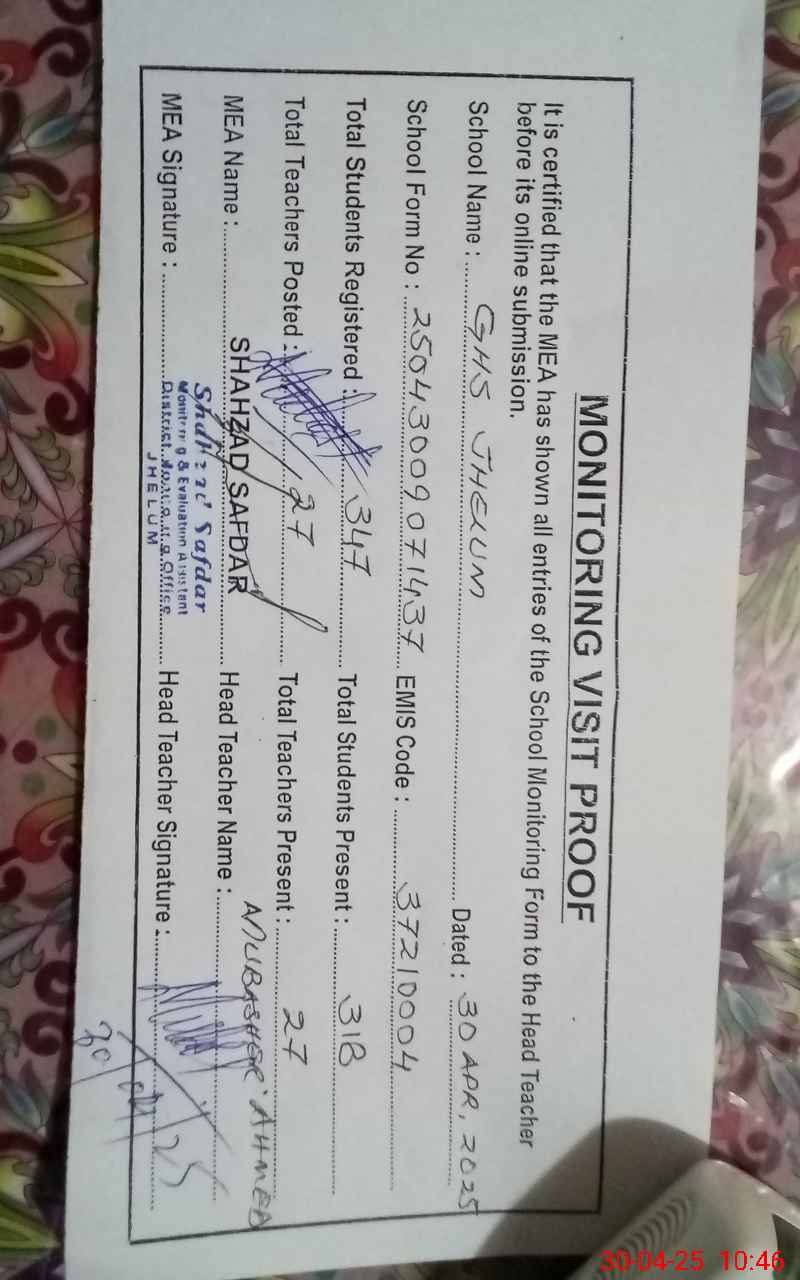 MONITORING VISIT PROOF
It is certified that the MEA has shown all entries of the School Monitoring Form to the Head Teacher
before its online submission.
School Name : GHS JHELUM Dated : 30 APR, 2025
School Form No : 25043009071437 EMIS Code : 37210004
Total Students Registered : 347 Total Students Present : 318
Total Teachers Posted : 27 Total Teachers Present : 27
MEA Name : SHAHZAD SAFDAR Head Teacher Name : MUBASHER AHMED
MEA Signature : Head Teacher Signature :
Shahzad Safdar
Monitoring & Evaluation Assistant
District Monitoring Office
JHELUM
30/04/25
30-04-25 10:46